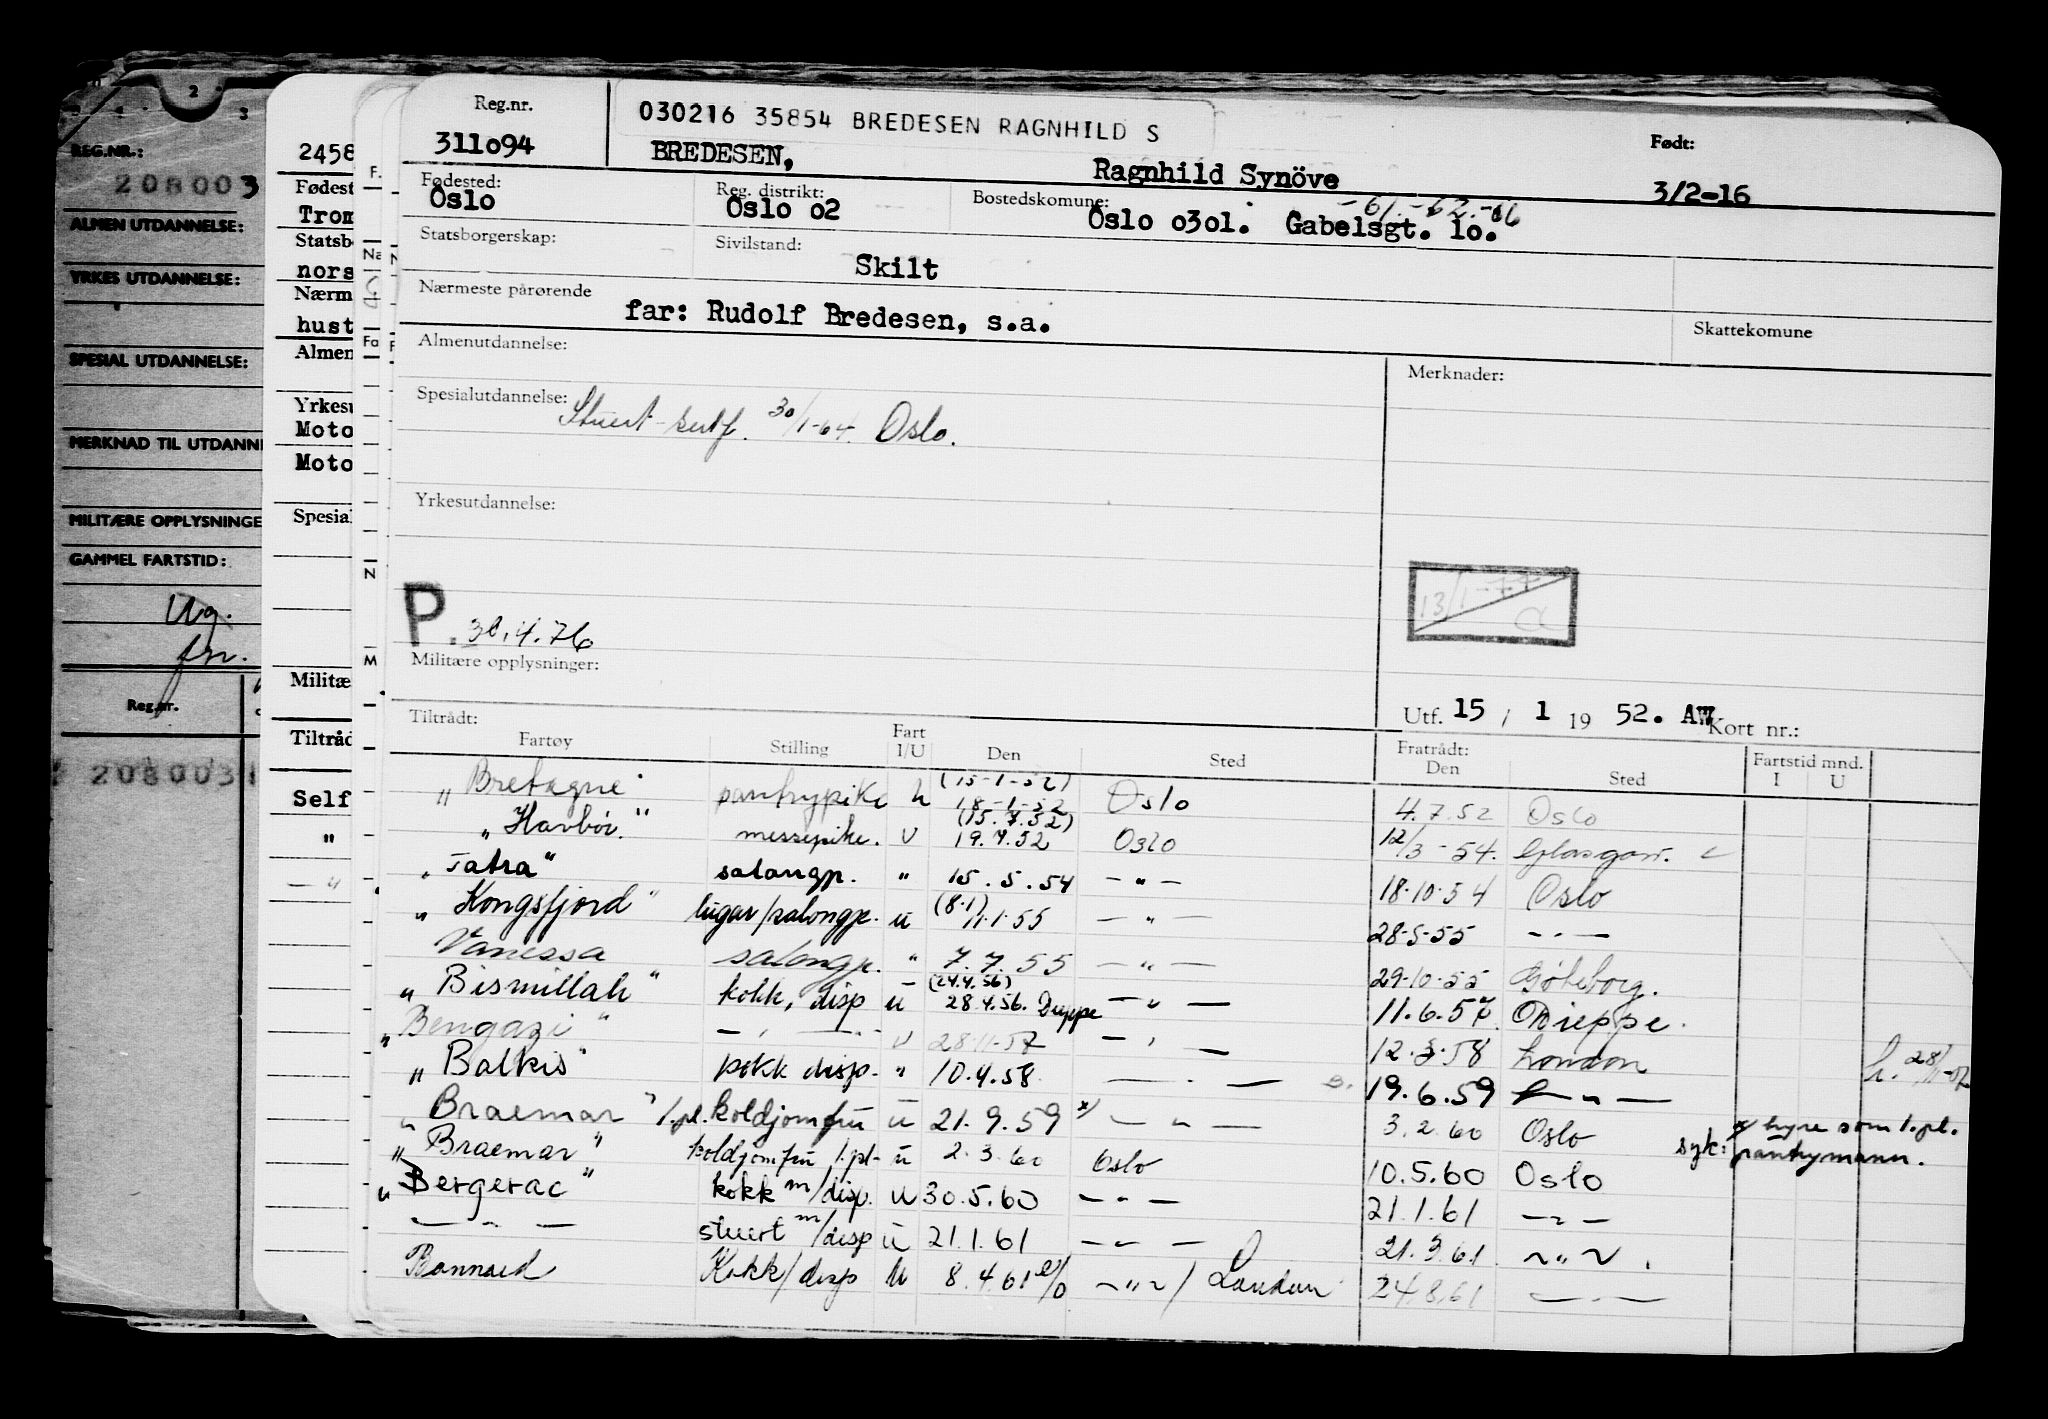 Reg.nr.
311o94
030216 35854 BREDESEN RAGNHILD S
BREDESEN, Ragnhild Synöve
Født:
3/2-16
Fødested:
Oslo
Reg. distrikt:
Oslo o2
Bostedskomune: -61.-62.-66
Oslo o3ol. Gabelsgt. lo.
Statsborgerskap:
Sivilstand:
Skilt
Nærmeste pårørende
far: Rudolf Bredesen, s.a.
Skattekomune
Almenutdannelse:
Merknader:
Spesialutdannelse:
Stuert-sertf. 30/1-64. Oslo.
Yrkesutdannelse:
13/1-77
a
P. 30.4.76
Militære opplysninger:
Utf. 15 / 1 19 52. AW Kort nr.:
Tiltrådt: Fratrådt: Fartstid mnd.
Fartøy Stilling Fart I/U Den Sted Den Sted I U
(15-1-52)
"Bretagne" pantrypike U 18-1-52 Oslo 4.7.52 Oslo
(15.7.52)
"Havbör." messepike. U 19.7.52 Oslo 12/3-54. Glasgow.
"Tatra" salongp. " 15.5.54 — " — 18-10-54 Oslo
(8.1)
"Kongsfjord" lugar/salongp. u 11.1.55 — " — 28-5-55 — " —
Vanessa salongp. " 7.7.55 — " — 29-10-55 Göteborg.
(24.4.56)
"Bismillah" kokk, disp u 28.4.56. Dieppe — " — 11.6.57 Dieppe.
"Bengazi" — " — u 28.11.57 — " — 12.3.58 London
"Balkis" kokk disp. " 10.4.58 — " — 19.6.59 — " —
"Braemar" 1.pl. koldjomfru u 21.9.59 x) — " — 3.2.60 Oslo x hyre som 1.pl. pantrymann.
"Braemar" koldjomfru 1.pl. u 2.3.60 Oslo 10.5.60 Oslo
syk:
"Bergerac" kokk m/disp. u 30.5.60 — " — 21.1.61 — " —
— " — stuert m/disp u 21.1.61 — " — 21.3.61 — " —
Kokk/disp U 8.4.61 — " — / London 24.8.61 — " —
REG.NR.:
208003
ALMEN UTDANNELSE:
YRKES UTDANNELSE:
SPESIAL UTDANNELSE:
MERKNAD TIL UTDANN
MILITÆRE OPPLYSNINGE
GAMMEL FARTSTID:
Reg.nr.
2080031
2458
Fødest
Trom
Statsb
nors
Nærm
hust
Almen
Yrkesu
Moto
Moto
Spesial
Militæ
Tiltråd
Self
"
F.
Na
Fa
N
M